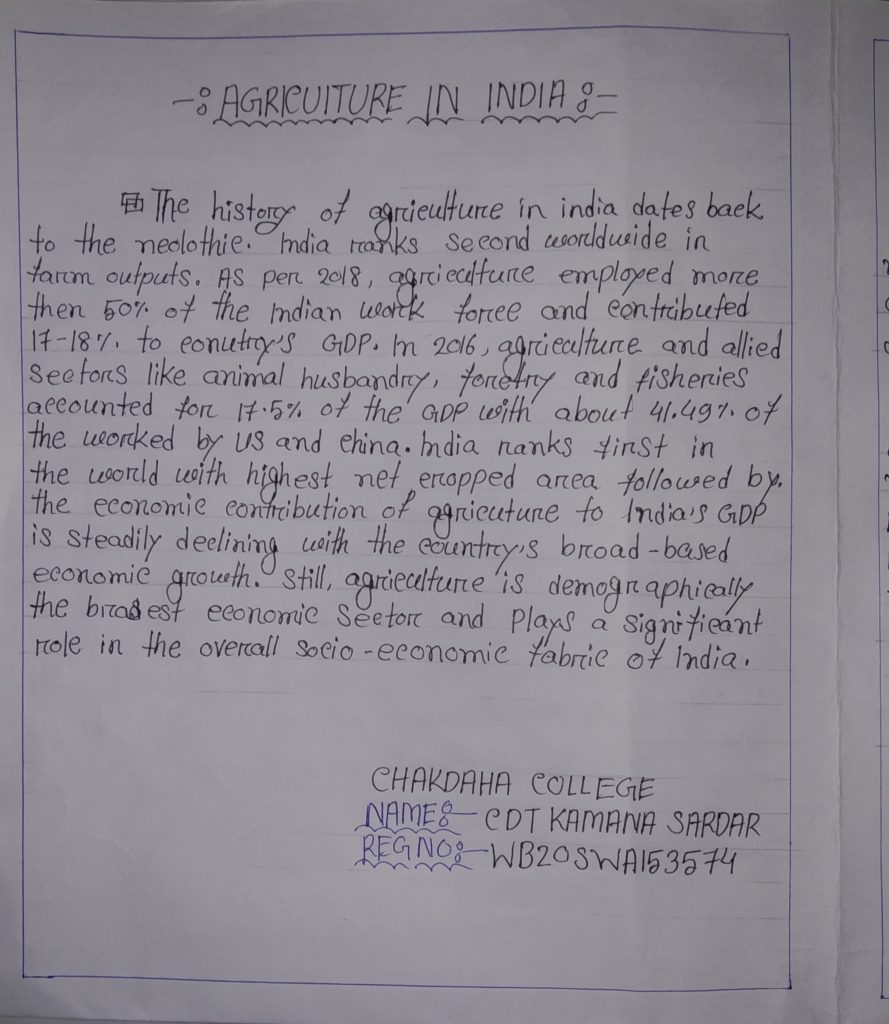 -: AGRICUITURE IN INDIA :-
The history of agriculture in india dates back
to the neolothic. India ranks second worldwide in
farm outputs. As per 2018, agriculture employed more
then 50% of the Indian work force and contributed
17-18%. to conutry's GDP. In 2016, agriculture and allied
Sectors like animal husbandry, foretry and fisheries
accounted for 17.5% of the GDP with about 41.49% of
the worked by US and china. India ranks first in
the world with highest net cropped area followed by.
the economic contribution of agricuture to India's GDP
is steadily declining with the country's broad-based
economic growth. Still, agriculture is demographically
the bradest economic Sector and Plays a significant
role in the overall socio-economic fabric of India.
CHAKDAHA COLLEGE
NAME:- CDT KAMANA SARDAR
REG NO:- WB20SWA153574